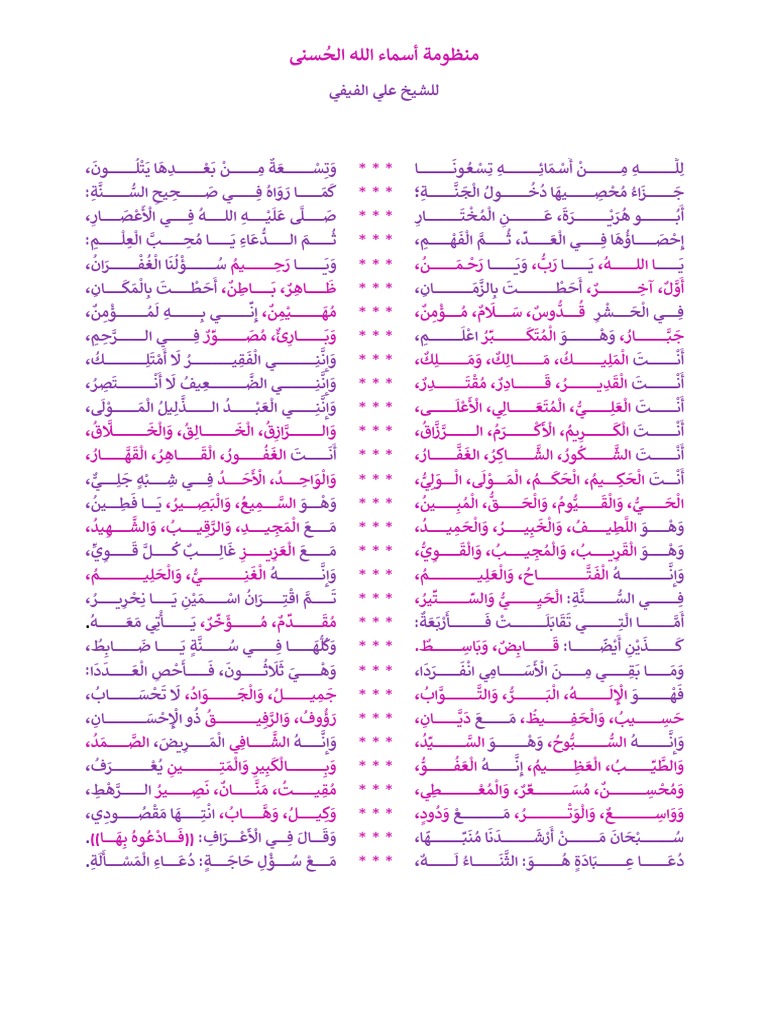 منظومة أسماء الله الحُسنى
للشيخ علي الفيفي
لِلَّهِ مِنْ أَسْمَائِهِ تِسْعُونَا *** وَتِسْعَةٌ مِنْ بَعْدِهَا يَتْلُونَ،
جَزَاءُ مُحْصِيهَا دُخُولُ الْجَنَّةِ؛ *** كَمَا رَوَاهُ فِي صَحِيحِ السُّنَّةِ:
أَبُو هُرَيْرَةَ، عَنِ الْمُخْتَارِ *** صَلَّى عَلَيْهِ اللهُ فِي الْأَعْصَارِ،
إِحْصَاؤُهَا فِي الْعَدِّ، ثُمَّ الْفَهْمِ، *** ثُمَّ الدُّعَاءِ يَا مُحِبَّ الْعِلْمِ:
يَا اللهُ، يَا رَبُّ، وَيَا رَحْمَنُ، *** وَيَا رَحِيمُ سُؤْلُنَا الْغُفْرَانُ،
أَوَّلٌ، آخِرٌ، أَحَطْتَ بِالزَّمَانِ، *** ظَاهِرٌ، بَاطِنٌ، أَحَطْتَ بِالْمَكَانِ،
فِي الْحَشْرِ قُدُّوسٌ، سَلَامٌ، مُؤْمِنٌ، *** مُهَيْمِنٌ، إِنِّي بِهِ لَمُؤْمِنٌ،
جَبَّارُ، وَهْوَ الْمُتَكَبِّرُ اعْلَمِ، *** وَبَارِئٌ، مُصَوِّرٌ فِي الرَّحِمِ،
أَنْتَ الْمَلِيكُ، مَالِكٌ، وَمَلِكٌ، *** وَإِنَّنِي الْفَقِيرُ لَا أَمْتَلِكُ،
أَنْتَ الْقَدِيرُ، قَادِرٌ، مُقْتَدِرٌ، *** وَإِنَّنِي الضَّعِيفُ لَا أَنْتَصِرُ،
أَنْتَ الْعَلِيُّ، الْمُتَعَالِي، الْأَعْلَى، *** وَإِنَّنِي الْعَبْدُ الذَّلِيلُ الْمَوْلَى،
أَنْتَ الْكَرِيمُ، الْأَكْرَمُ، الرَّزَّاقُ، *** وَالرَّازِقُ، الْخَالِقُ، وَالْخَلَّاقُ،
أَنْتَ الشَّكُورُ، الشَّاكِرُ، الْغَفَّارُ، *** أَنَتَ الْغَفُورُ، الْقَاهِرُ، الْقَهَّارُ،
أَنْتَ الْحَكِيمُ، الْحَكَمُ، الْمَوْلَى، الْوَلِيُّ، *** وَالْوَاحِدُ، الْأَحَدُ فِي شِبْهٍ جَلِيٍّ،
الْحَيُّ، وَالْقَيُّومُ، وَالْحَقُّ، الْمُبِينُ، *** وَهْوَ السَّمِيعُ، وَالْبَصِيرُ، يَا فَطِينُ،
وَهْوَ اللَّطِيفُ، وَالْخَبِيرُ، وَالْحَمِيدُ، *** مَعَ الْمَجِيدِ، وَالرَّقِيبُ، وَالشَّهِيدُ،
وَهْوَ الْقَرِيبُ، وَالْمُجِيبُ، وَالْقَوِيُّ، *** مَعَ الْعَزِيزِ غَالِبٌ كُلَّ قَوِيٍّ،
وَإِنَّهُ الْفَتَّاحُ، وَالْعَلِيمُ، *** وَإِنَّهُ الْغَنِيُّ، وَالْحَلِيمُ،
فِي السُّنَّةِ: الْحَيِيُّ وَالسِّتِّيرُ، *** تَمَّ اقْتِرَانُ اسْمَيْنِ يَا نِحْرِيرُ،
أَمَّا الَّتِي تَقَابَلَتْ فَأَرْبَعَةٌ: *** مُقَدِّمٌ، مُؤَخِّرٌ، يَأْتِي مَعَهُ.
كَذَيْنِ أَيْضًا: قَابِضٌ، وَبَاسِطٌ. *** وَكُلُّهَا فِي سُنَّةٍ يَا ضَابِطُ،
وَمَا بَقِي مِنَ الْأَسَامِي انْفَرَدَا، *** وَهْيَ ثَلَاثُونَ، فَأَحْصِ الْعَدَدَا:
فَهْوَ الْإِلَهُ، الْبَرُّ، وَالتَّوَّابُ، *** جَمِيلُ، وَالْجَوَادُ، لَا تَحْسَابُ،
حَسِيبُ، وَالْحَفِيظُ، مَعَ دَيَّانِ، *** رَؤُوفُ، وَالرَّفِيقُ ذُو الْإِحْسَانِ،
وَإِنَّهُ السُّبُّوحُ، وَهْوَ السَّيِّدُ، *** وَإِنَّهُ الشَّافِي الْمَرِيضَ، الصَّمَدُ،
وَالطَّيِّبُ، الْعَظِيمُ، إِنَّهُ الْعَفُوُّ، *** وَبِالْكَبِيرِ وَالْمَتِينِ يُعْرَفُ،
وَمُحْسِنٌ، مُسَعِّرٌ، وَالْمُعْطِي، *** مُقِيتُ، مَنَّانٌ، نَصِيرُ الرَّهْطِ،
وَوَاسِعٌ، وَالْوَتْرُ، مَعْ وَدُودٍ، *** وَكِيلُ، وَهَّابُ، انْتِهَا مَقْصُودِي،
سُبْحَانَ مَنْ أَرْشَدَنَا مُنَبِّهًا، *** وَقَالَ فِي الْأَعْرَافِ: ((فَادْعُوهُ بِهَا)).
دُعَا عِبَادَةٍ هُوَ: الثَّنَاءُ لَهُ، *** مَعْ سُؤْلِ حَاجَةٍ: دُعَاءِ الْمَسْأَلَةِ.